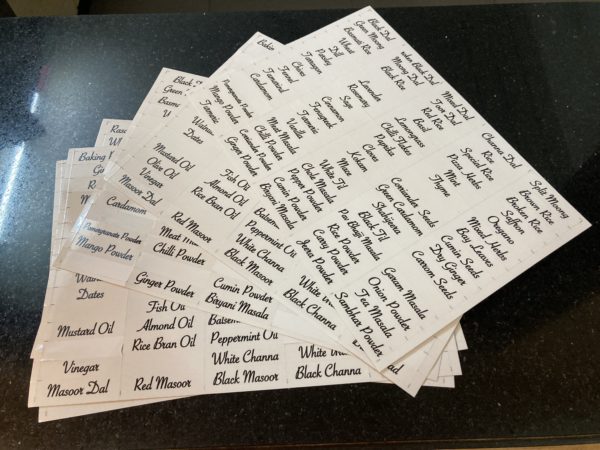 Black Dal
Green Moong
Basmati Rice
Wheat
Dill
Parsley
Tarragon
Chives
Fennel
Tamarind
Cardamom
Pomegranate Powder
Mango Powder
Black Dal
Moong Dal
Black Rice
Lavender
Rosemary
Sage
Cinnamon
Fenugreek
Vanilla
Turmeric
Meat Masala
Chilli Powder
Coriander Powder
Ginger Powder
Toor Dal
Red Rice
Basil
Lemongrass
Chilli Flakes
Paprika
Cloves
Mace
Kokum
White Til
Chaat Masala
Pepper Powder
Cumin Powder
Biryani Masala
Channa Dal
Rice
Special Rice
Pizza Herbs
Mint
Thyme
Coriander Seeds
Green Cardamom
Shahjeera
Black Til
Pav Bhaji Masala
Rice Powder
Curry Powder
Jeera Powder
Split Moong
Brown Rice
Broken Rice
Saffron
Oregano
Mixed Herbs
Bay Leaves
Cumin Seeds
Dry Ginger
Carom Seeds
Garam Masala
Onion Powder
Tea Masala
Sambhar Powder
Mustard Oil
Olive Oil
Vinegar
Masoor Dal
Cardamom
Pomegranate Powder
Mango Powder
Dates
Almond Oil
Rice Bran Oil
Red Masoor
Chilli Powder
Ginger Powder
Peppermint Oil
White Channa
Black Masoor
Cumin Powder
Biryani Masala
Black Channa
Baking Powder
Dates
Mustard Oil
Vinegar
Masoor Dal
Fish Oil
Almond Oil
Rice Bran Oil
Red Masoor
Peppermint Oil
White Channa
Black Masoor
Black Channa